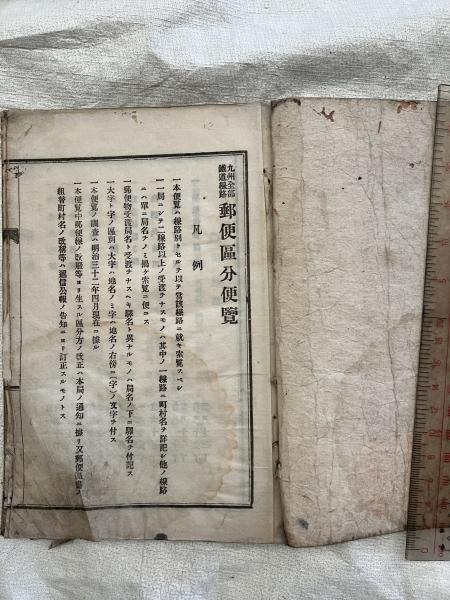 九州全部
鐵道線路
郵便區分便覽
凡例
一本便覽ハ線路別トセルヲ以テ當該線路ニ就キ索覽スベシ
一一局ニシテ二線路以上ノ受渡ヲナスモノハ其中ノ一線路ニ町村名ヲ詳記シ他ノ線路
ニハ單ニ局名ヲノミ揭ケ索覽ニ便ニス
一郵便物受渡局名ト受渡ヲナスヘキ驛名ト異ナルモノハ局名ノ下ニ驛名ヲ付記ス
一大字ト字ノ區別ハ大字ハ地名ノミ字ハ地名ノ右傍ニ(字)ノ文字ヲ付ス
一本便覽ノ調査ハ明治三十二年四月現在ニ據ル
一本便覽中郵便線路ノ改廢等ヨリ生スル區分方ノ改正ハ本局ノ通知ニ據リ又郵便區
組替町村名ノ改稱等ハ遞信公報ノ告知ニヨリ訂正スルモノトス